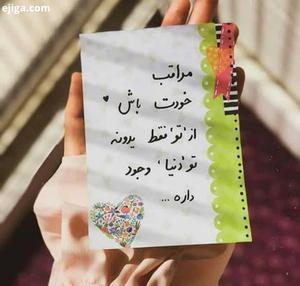 ejiga.com
مراقب
خودت باش ♥
از 'تو' فقط یدونه
تو 'دنیا' وجود
داره ...